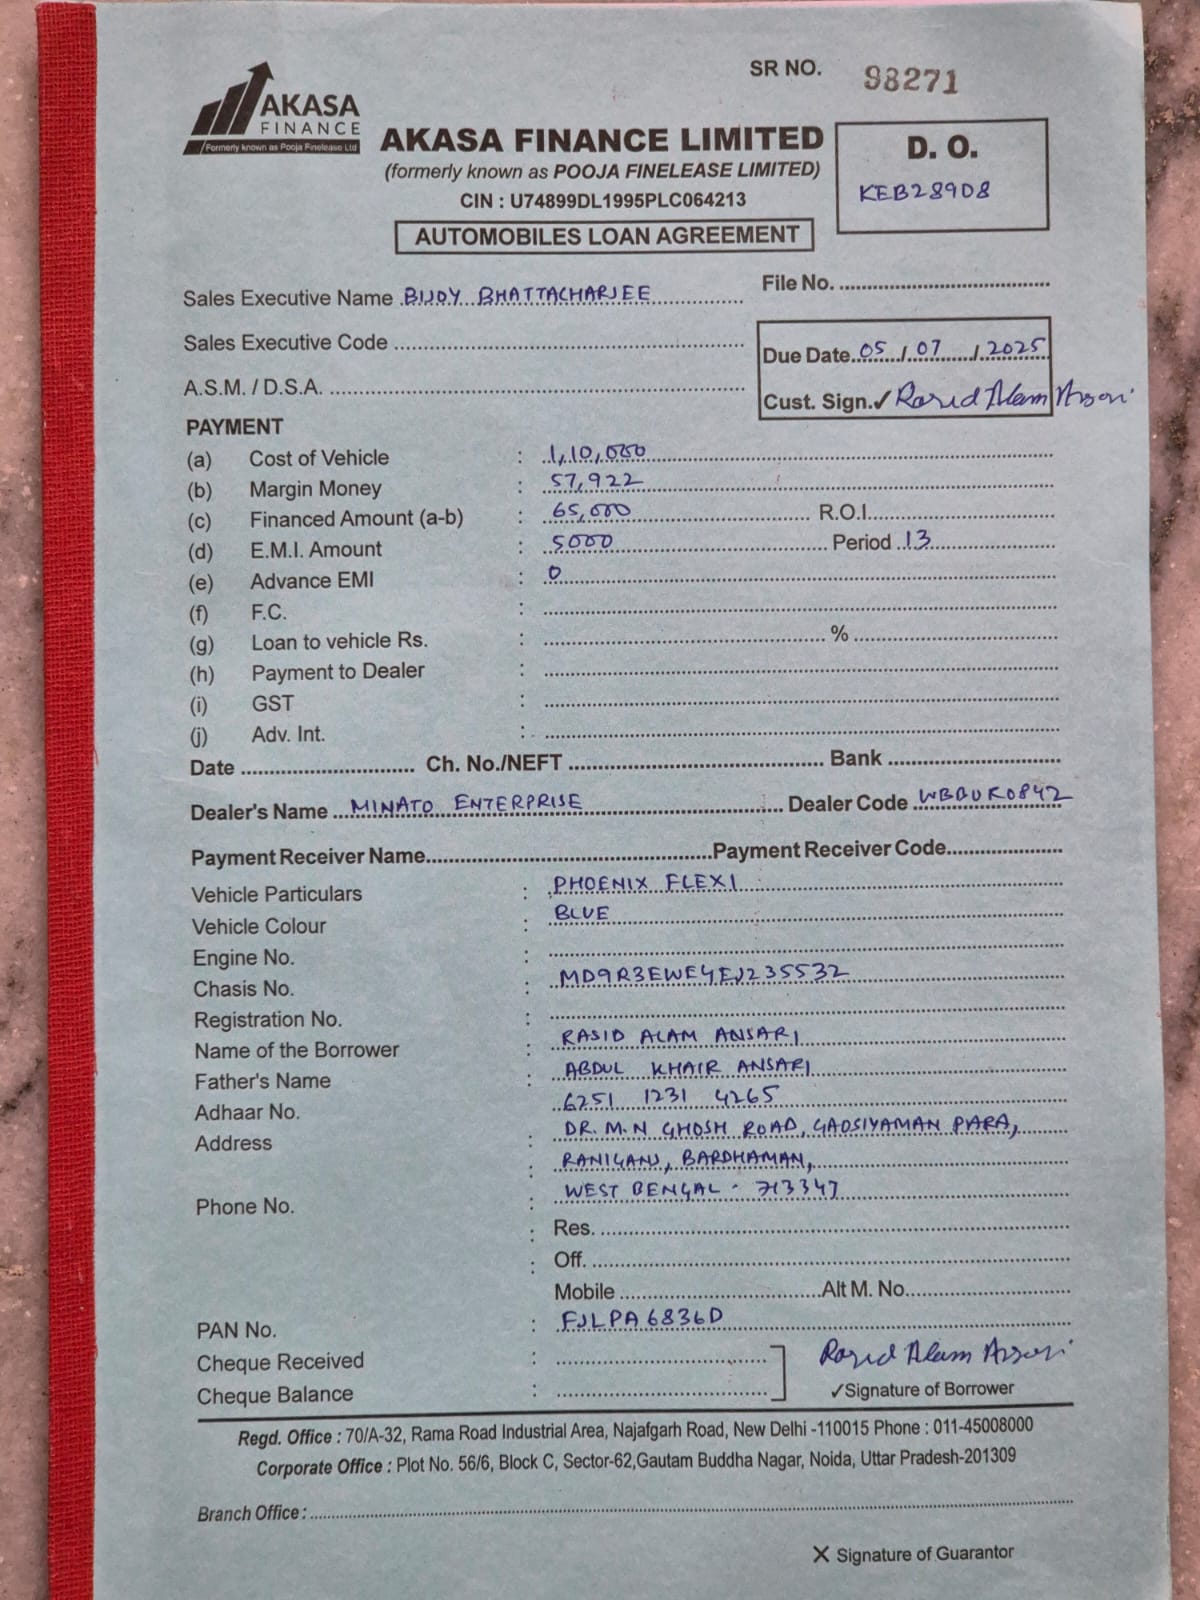 SR NO. 98271
AKASA
FINANCE
Formerly known as Pooja Finelease Ltd
AKASA FINANCE LIMITED
(formerly known as POOJA FINELEASE LIMITED)
CIN : U74899DL1995PLC064213
AUTOMOBILES LOAN AGREEMENT
D. O.
KEB28908
Sales Executive Name BIJOY BHATTACHARJEE
File No.
Sales Executive Code
Due Date 05 / 07 / 2025
A.S.M. / D.S.A.
Cust. Sign.✓ Rasid Alam Ansari
PAYMENT
(a) Cost of Vehicle : 1,10,000
(b) Margin Money : 57,922
(c) Financed Amount (a-b) : 65,000 R.O.I.
(d) E.M.I. Amount : 5000 Period 13
(e) Advance EMI : 0
(f) F.C. :
(g) Loan to vehicle Rs. : %
(h) Payment to Dealer :
(i) GST :
(j) Adv. Int. :
Date Ch. No./NEFT Bank
Dealer's Name MINATO ENTERPRISE Dealer Code WBBUR0842
Payment Receiver Name Payment Receiver Code
Vehicle Particulars : PHOENIX FLEXI
Vehicle Colour : BLUE
Engine No. :
Chasis No. : MD9R3EWE4EJ235532
Registration No. :
Name of the Borrower : RASID ALAM ANSARI
Father's Name : ABDUL KHAIR ANSARI
Adhaar No. 6251 1231 4265
Address : DR. M.N GHOSH ROAD, GAOSIYAMAN PARA,
: RANIGANJ, BARDHAMAN,
: WEST BENGAL - 713347
Phone No.
: Res.
: Off.
Mobile Alt M. No.
PAN No. : FJLPA6836D
Cheque Received :
Rasid Alam Ansari
Cheque Balance :
✓Signature of Borrower
Regd. Office : 70/A-32, Rama Road Industrial Area, Najafgarh Road, New Delhi -110015 Phone : 011-45008000
Corporate Office : Plot No. 56/6, Block C, Sector-62,Gautam Buddha Nagar, Noida, Uttar Pradesh-201309
Branch Office :
X Signature of Guarantor